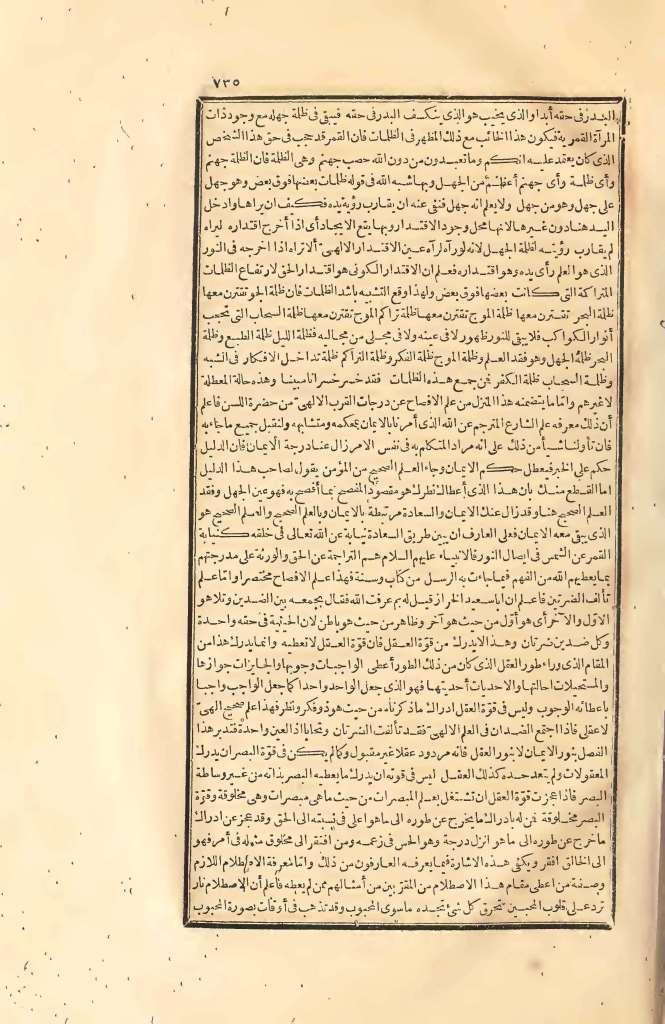 ٧٣٥
البدر في حقه أبدا والذي يحجب هو الذي ينكسف البدر في حقه فيبقى في ظلمة جهله مع وجود ذات
المرآة القمرية فيكون هذا الحائب مع ذلك المظهر في الظلمات فان القمر قد حجب في حق هذا الشخص
الذي كان يعتمد عليه انكم وما تعبدون من دون الله حصب جهنم وهي الظلمة فان الظلمة جهنم
وأي ظلمة وأي جهنم أعظم من الجهل وبها شبه الله في قوله ظلمات بعضها فوق بعض وهو جهل
على جهل وهو من جهل ولا يعلم انه جهل فنفى عنه ان يقارب رؤية يده فكيف ان يراها وادخل
اليد هنا دون غيرها لانها محل وجود الاقتدار وبها يقع الايجاد أي اذا أخرج اقتداره ليراه
لم يقارب رؤيته لظلمة الجهل لانه لو رآه لرآه عين الاقتدار الالهي ألا تراه اذا اخرجه في النور
الذي هو العلم رأى يده وهو اقتداره فعلم ان الاقتدار الكوني هو اقتدار الحق لارتفاع الظلمات
المتراكمة التي كانت بعضها فوق بعض ولهذا وقع التشبيه بأشد الظلمات فان ظلمة الجو تقترن معها
ظلمة البحر تقترن معها ظلمة الموج تقترن معها ظلمة تراكم الموج تقترن معها ظلمة السحاب التي تحجب
أنوار الكواكب فلا يبقى للنور ظهور لا في عينه ولا في مجلى من مجاليه فظلمة الليل ظلمة الطبع وظلمة
البحر ظلمة الجهل وهو فقد العلم وظلمة الموج ظلمة الفكر وظلمة التراكم ظلمة تداخل الافكار في الشبه
وظلمة السحاب ظلمة الكفر فمن جمع هذه الظلمات فقد خسر خسرانا مبينا وهذه حالة المعطلة
لا غيرهم واما ما يتضمنه هذا المنزل من علم الافصاح عن درجات القرب الالهي من حضرة اللسن فاعلم
أن ذلك معرفة علم الشارع المترجم عن الله الذي أمرنا بالايمان بمحكمه ومتشابهه ولنقبل جميع ما جاء به
فان تأولنا شيأ من ذلك على انه مراد المتكلم به في نفس الامر زال عنا درجة الايمان فان الدليل
حكم على الخبر فيعطل حكم الايمان وجاء العلم الصحيح من المؤمن يقول لصاحب هذا الدليل
اما القطع منك بان هذا الذي أعطاك نظرك هو مقصود المفصح بما أفصح به فهو عين الجهل وفقد
العلم الصحيح هنا وقد زال عنك الايمان والسعادة مرتبطة بالايمان وبالعلم الصحيح والعلم الصحيح هو
الذي يبقى معه الايمان فعلى العارف ان يبين طريق السعادة نيابة عن الله تعالى في خلقه كنيابة
القمر عن الشمس في ايصال النور فالانبياء عليهم السلام هم التراجمة عن الحق والورثة على مدرجتهم
بما يعطيهم الله من الفهم فيما جاءت به الرسل من كتاب وسنة فهذا علم الافصاح مختصرا واما علم
تألف الضرتين فاعلم ان ابا سعيد الخراز قيل له بم عرفت الله فقال بجمعه بين الضدين وتلا هو
الاول والآخر أي هو أول من حيث هو آخر وظاهر من حيث هو باطن لان الحيثية في حقه واحدة
وكل ضدين ضرتان وهذا لا يدرك من قوة العقل فان قوة العقل لا تعطيه وانما يدرك هذا من
المقام الذي وراء طور العقل الذي كان من ذلك الطور أعطى الواجبات وجوبها والجائزات جوازها
والمستحيلات احالتها والاحديات أحديتها فهو الذي جعل الواحد واحدا كما جعل الواجب واجبا
باعطائه الوجوب وليس في قوة العقل ادراك ما ذكرناه من حيث هو ذو فكر ونظر فهذا علم صحيح الهي
لا عقلي فاذا اجتمع الضدان في العلم الالهي فقد تألفت الضرتان وتحابا اذ العين واحدة فتدبر هذا
الفصل بنور الايمان لا بنور العقل فانه مردود عقلا غير مقبول وكما لم يكن في قوة البصر ان يدرك
المعقولات ولم يتعد حده كذلك العقل ليس في قوته ان يدرك ما يعطيه البصر بذاته من غير وساطة
البصر فاذا عجزت قوة العقل ان تستقل بعلم المبصرات من حيث ما هي مبصرات وهي مخلوقة وقوة
البصر مخلوقة فمن له بادراك ما يخرج عن طوره الى ما هو اعلى في نسبته الى الحق وقد عجز عن ادراك
ما خرج عن طوره الى ما هو انزل درجة وهو الحس في زعمه ومن افتقر الى مخلوق مثله في أمر فهو
الى الخالق افقر ويكفي هذه الاشارة فيما يعرفه العارفون من ذلك واما معرفة الاصطلام اللازم
وصفة من اعطى مقام هذا الاصطلام من المقربين من أمثالهم ممن لم يعطه فاعلم أن الاصطلام نار
ترد على قلوب المحبين تحرق كل شئ تجده ما سوى المحبوب وقد تذهب في أوقات بصورة المحبوب